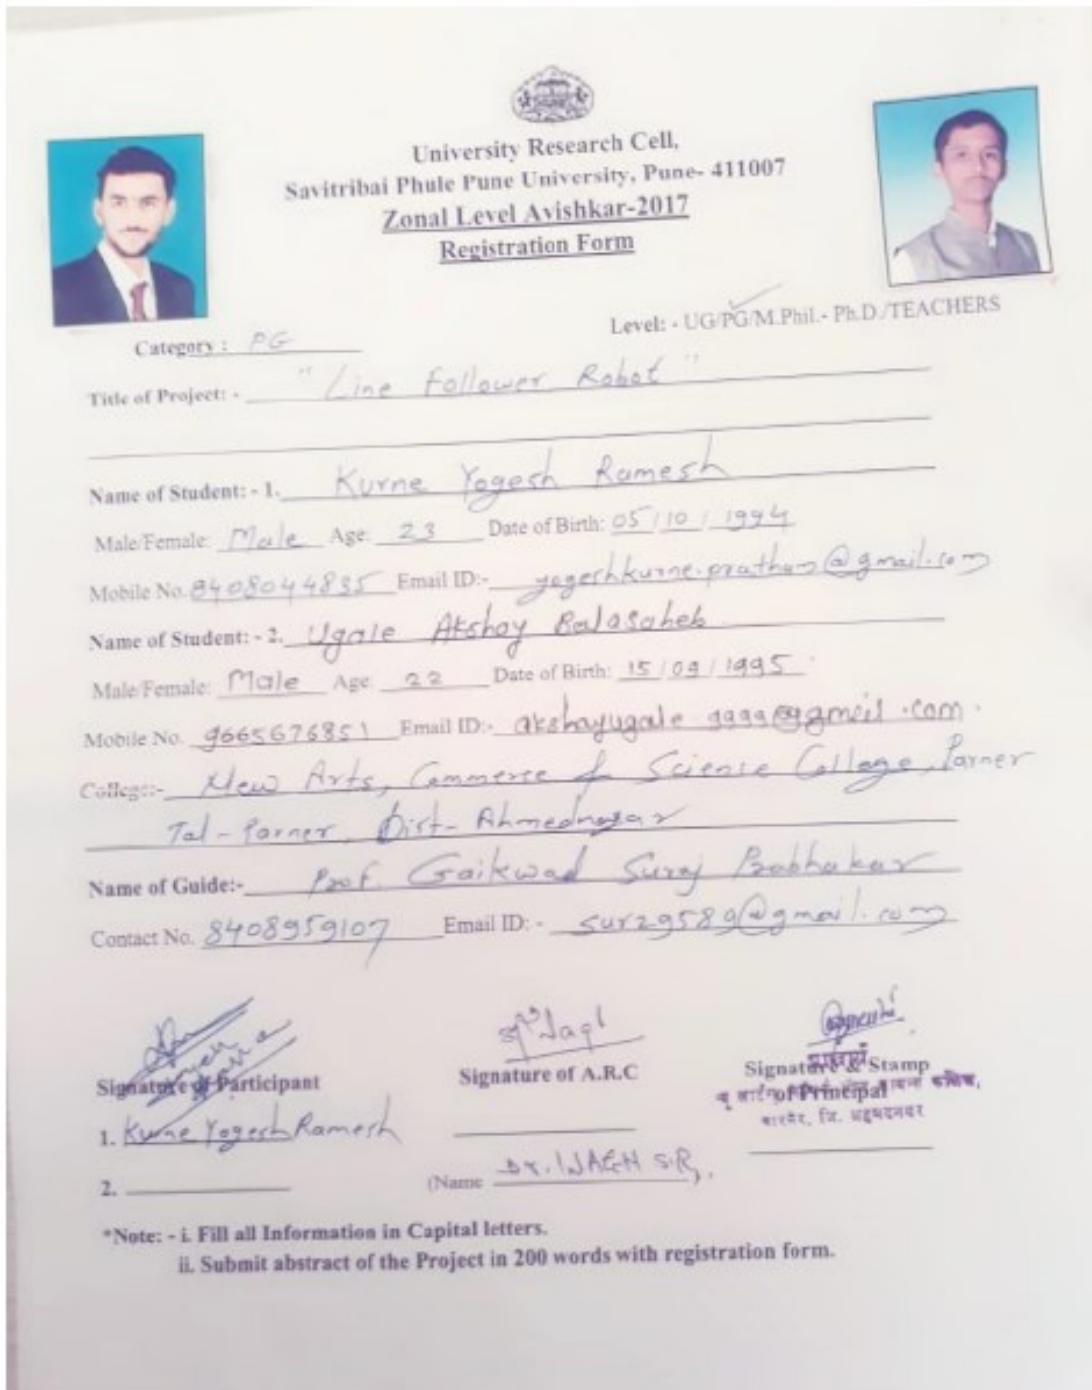 University Research Cell,
Savitribai Phule Pune University, Pune- 411007
Zonal Level Avishkar-2017
Registration Form
Level: - UG/PG/M.Phil.- Ph.D./TEACHERS
Category : PG
Title of Project: - "Line Follower Robot"
Name of Student: - 1. Kurne Yogesh Ramesh
Male/Female: Male Age: 23 Date of Birth: 05/10/1994
Mobile No. 8408044835 Email ID:- yogeshkurne.pratham@gmail.com
Name of Student: - 2. Ugale Akshay Balasaheb
Male/Female: Male Age: 22 Date of Birth: 15/09/1995
Mobile No. 9665676851 Email ID:- akshayugale9999@gmail.com.
College:- New Arts, Commerce & Science College, Parner
Tal-Parner, Dist-Ahmednagar
Name of Guide:- Prof. Gaikwad Suraj Prabhakar
Contact No. 8408959107 Email ID: - sur29589@gmail.com
Signature of Participant
Signature of A.R.C
Signature & Stamp
of Principal
1. Kurne Yogesh Ramesh
2.
(Name Dr. WAGH SIR).
*Note: - i. Fill all Information in Capital letters.
ii. Submit abstract of the Project in 200 words with registration form.